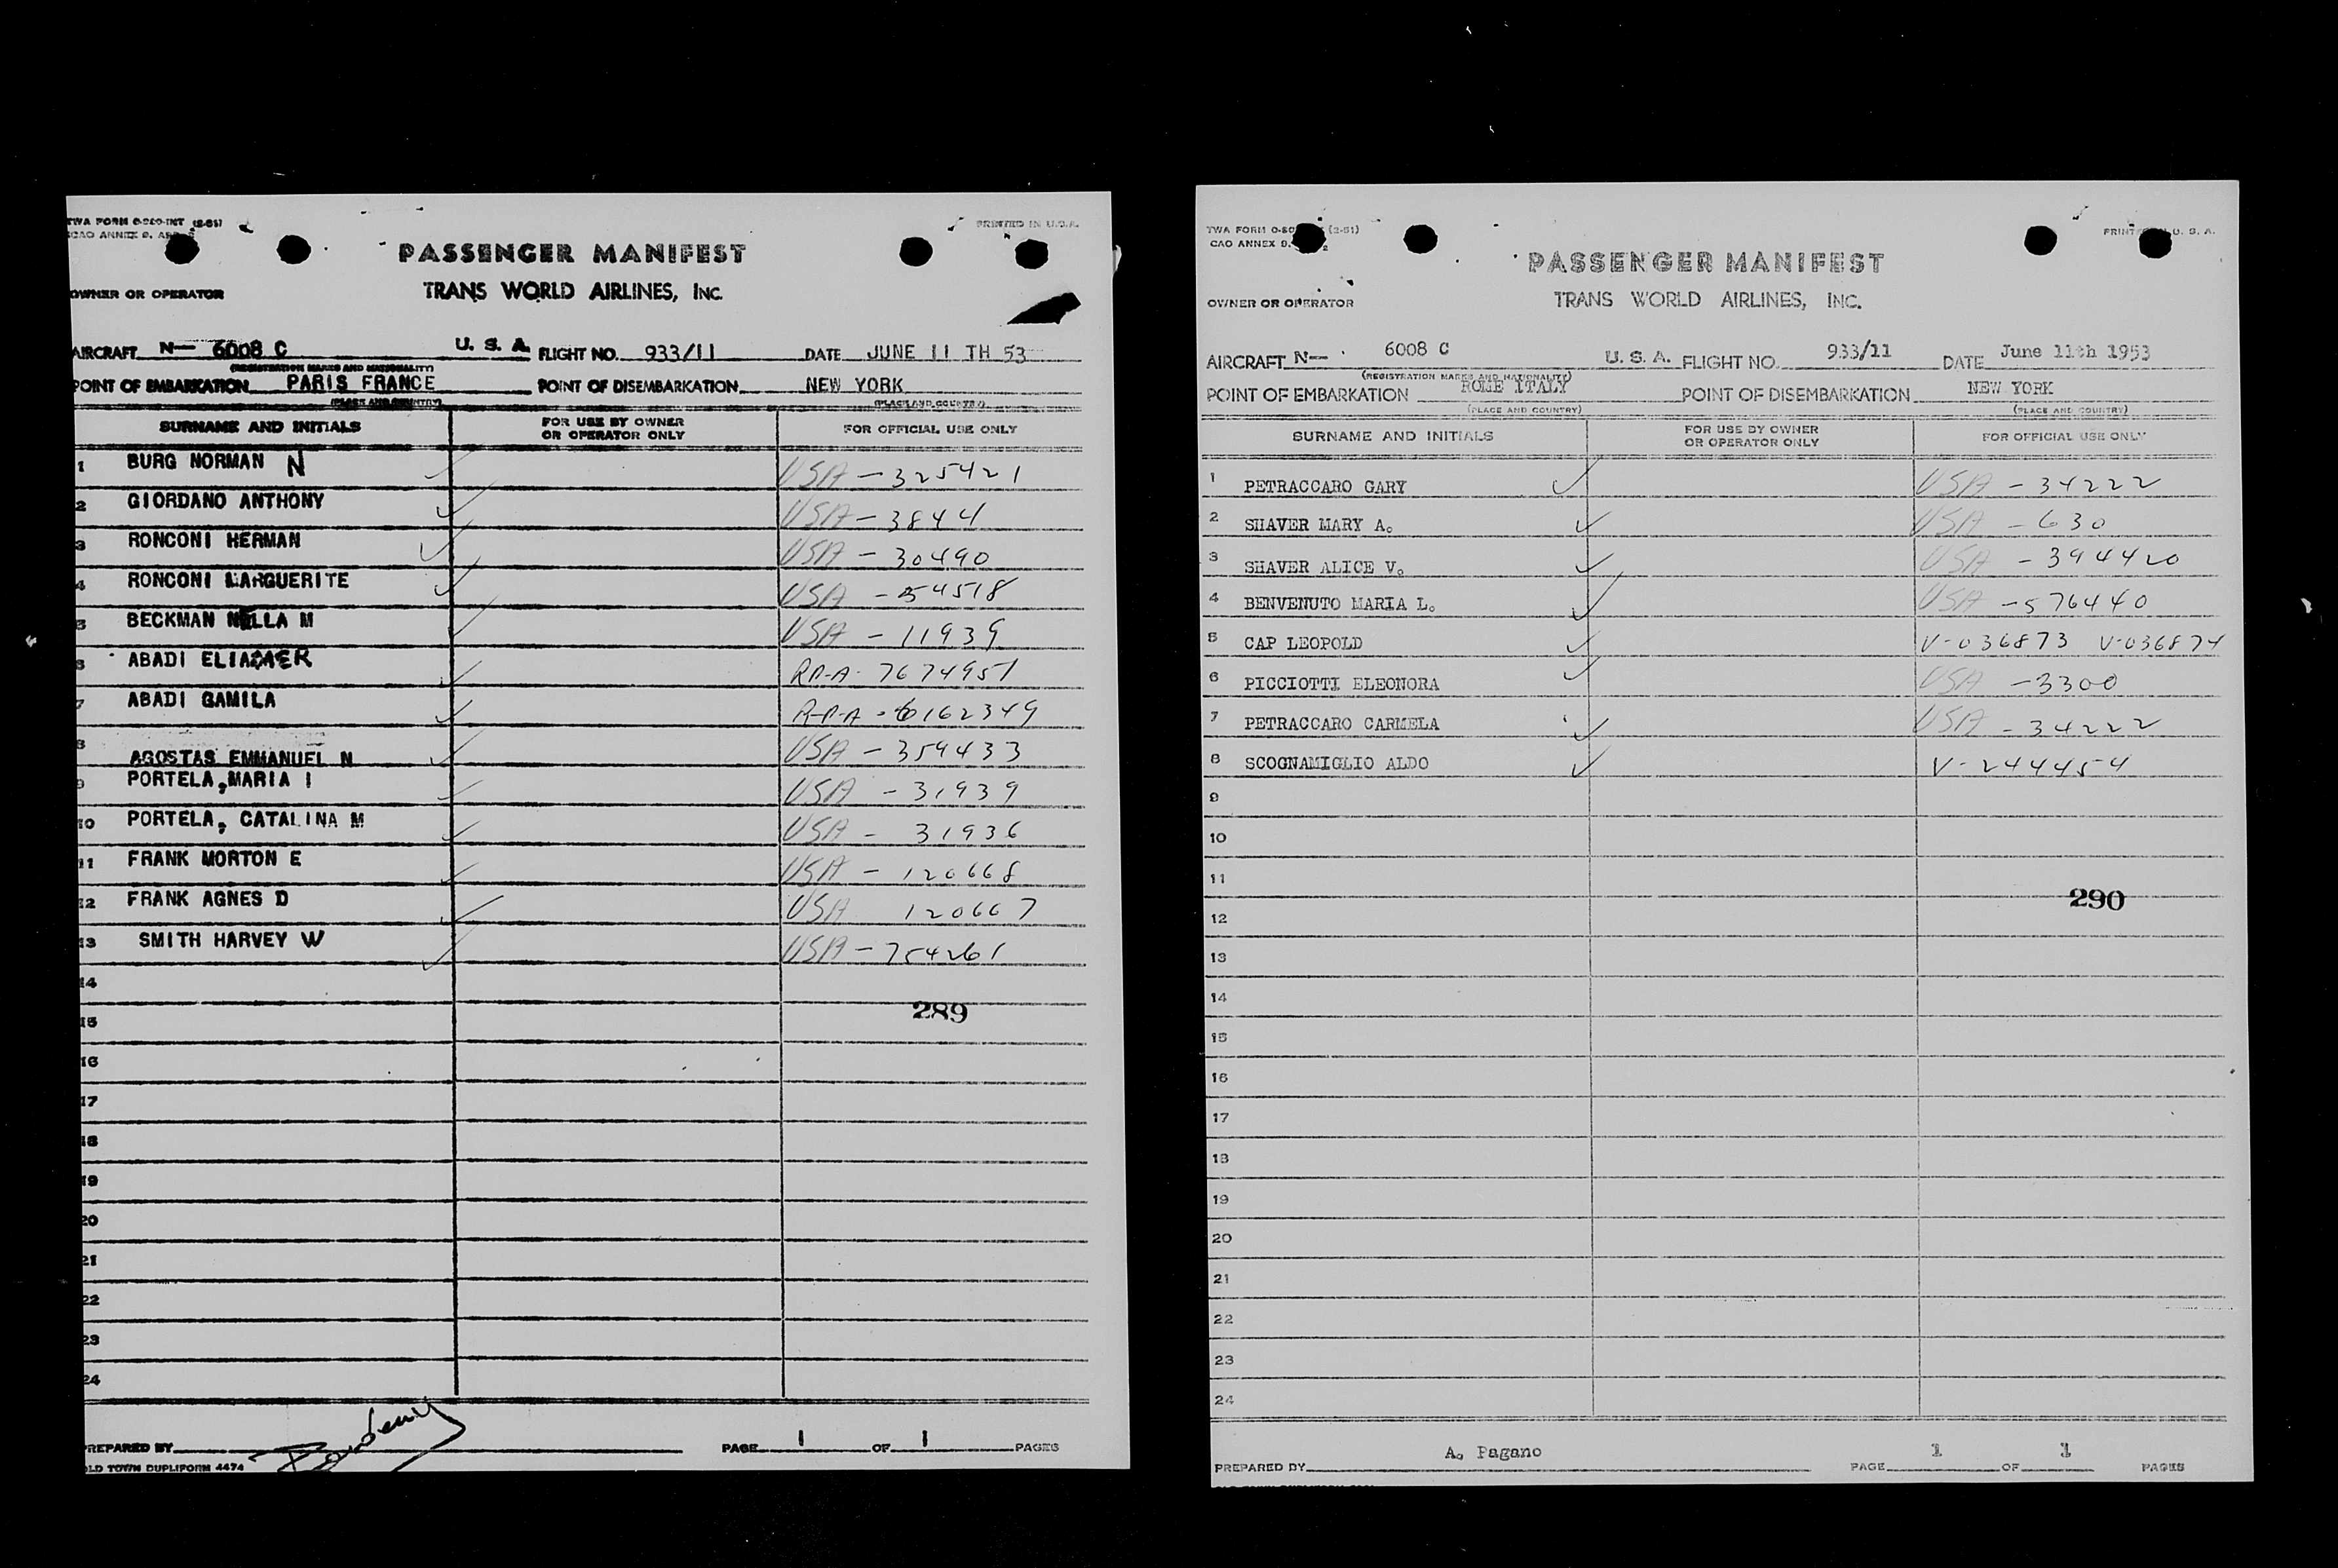 TWA FORM O-800-INT (2-51)
PRINTED IN U.S.A.
PASSENGER MANIFEST
TRANS WORLD AIRLINES, INC.
OWNER OR OPERATOR
AIRCRAFT N— 6008 C U. S. A. FLIGHT NO. 933/11 DATE JUNE 11 TH 53
(REGISTRATION MARKS AND NATIONALITY)
POINT OF EMBARKATION PARIS FRANCE POINT OF DISEMBARKATION NEW YORK
(PLACE AND COUNTRY) (PLACE AND COUNTRY)
SURNAME AND INITIALS FOR USE BY OWNER OR OPERATOR ONLY FOR OFFICIAL USE ONLY
1 BURG NORMAN N USA - 325421
2 GIORDANO ANTHONY USA - 3844
3 RONCONI HERMAN USA - 30490
4 RONCONI MARGUERITE USA - 54518
5 BECKMAN NELLA M USA - 11939
6 ABADI ELIAZAER RP-A- 7674951
7 ABADI GAMILA R-P-A - 6162349
8 AGOSTAS EMMANUEL N USA - 359433
9 PORTELA, MARIA I USA - 31939
10 PORTELA, CATALINA M USA - 31936
11 FRANK MORTON E USA - 120668
12 FRANK AGNES D USA 120667
13 SMITH HARVEY W USA - 754261
14
289
15
16
17
18
19
20
21
22
23
24
PREPARED BY PAGE 1 OF 1 PAGES
OLD TOWN DUPLIFORM 4474
TWA FORM O-80 (2-51)
PRINT U. S. A.
CAO ANNEX 9,
PASSENGER MANIFEST
TRANS WORLD AIRLINES, INC.
OWNER OR OPERATOR
AIRCRAFT N— 6008 C U. S. A. FLIGHT NO. 933/11 DATE June 11th 1953
(REGISTRATION MARKS AND NATIONALITY)
POINT OF EMBARKATION ROME ITALY POINT OF DISEMBARKATION NEW YORK
(PLACE AND COUNTRY) (PLACE AND COUNTRY)
SURNAME AND INITIALS FOR USE BY OWNER OR OPERATOR ONLY FOR OFFICIAL USE ONLY
1 PETRACCARO GARY USA - 34222
2 SHAVER MARY A. USA - 630
3 SHAVER ALICE V. USA - 394420
4 BENVENUTO MARIA L. USA - 576440
5 CAP LEOPOLD V-036873 V-036874
6 PICCIOTTI ELEONORA USA - 3300
7 PETRACCARO CARMELA USA - 34222
8 SCOGNAMIGLIO ALDO V-244454
9
10
11
290
12
13
14
15
16
17
18
19
20
21
22
23
24
PREPARED BY A. Pagano PAGE 1 OF 1 PAGES